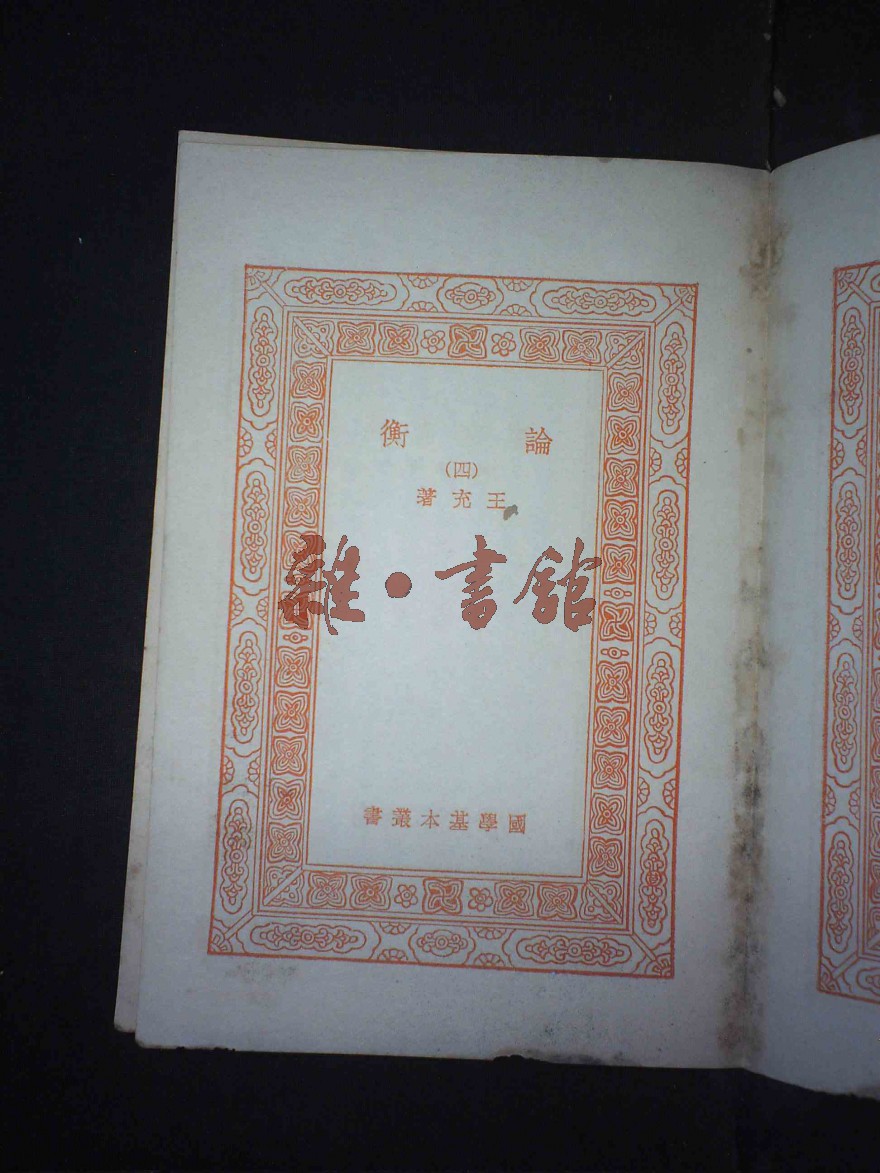 論衡
(四)
王充著
雜·書館
國學基本叢書